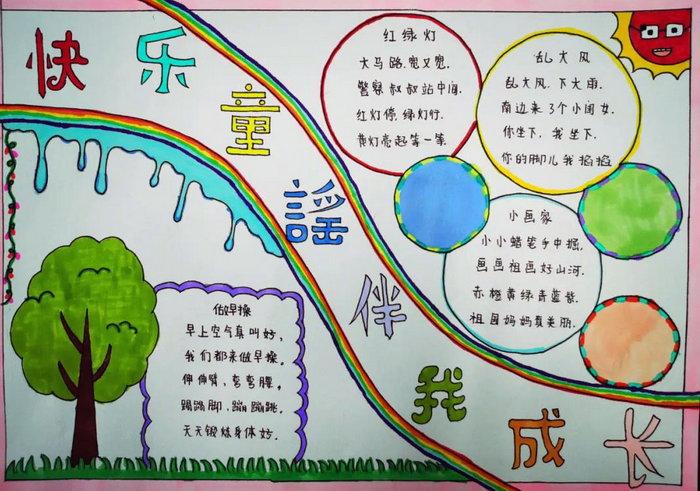 快乐童謡伴我成长
红绿灯
大马路,宽又宽.
警察叔叔站中间.
红灯停,绿灯行.
黄灯亮起等一等.
乱大风
乱大风,下大雨.
南边来了个小闺女.
你坐下,我坐下.
你的脚儿我掐掐
小画家
小小蜡笔手中握.
画画祖国好山河.
赤橙黄绿青蓝紫.
祖国妈妈真美丽.
做早操
早上空气真叫好,
我们都来做早操。
伸伸臂,弯弯腰。
踢踢脚,蹦蹦跳.
天天锻炼身体好.